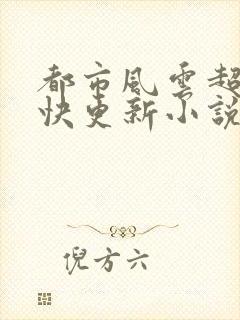 都市風雲超
快更新小説
倪方六